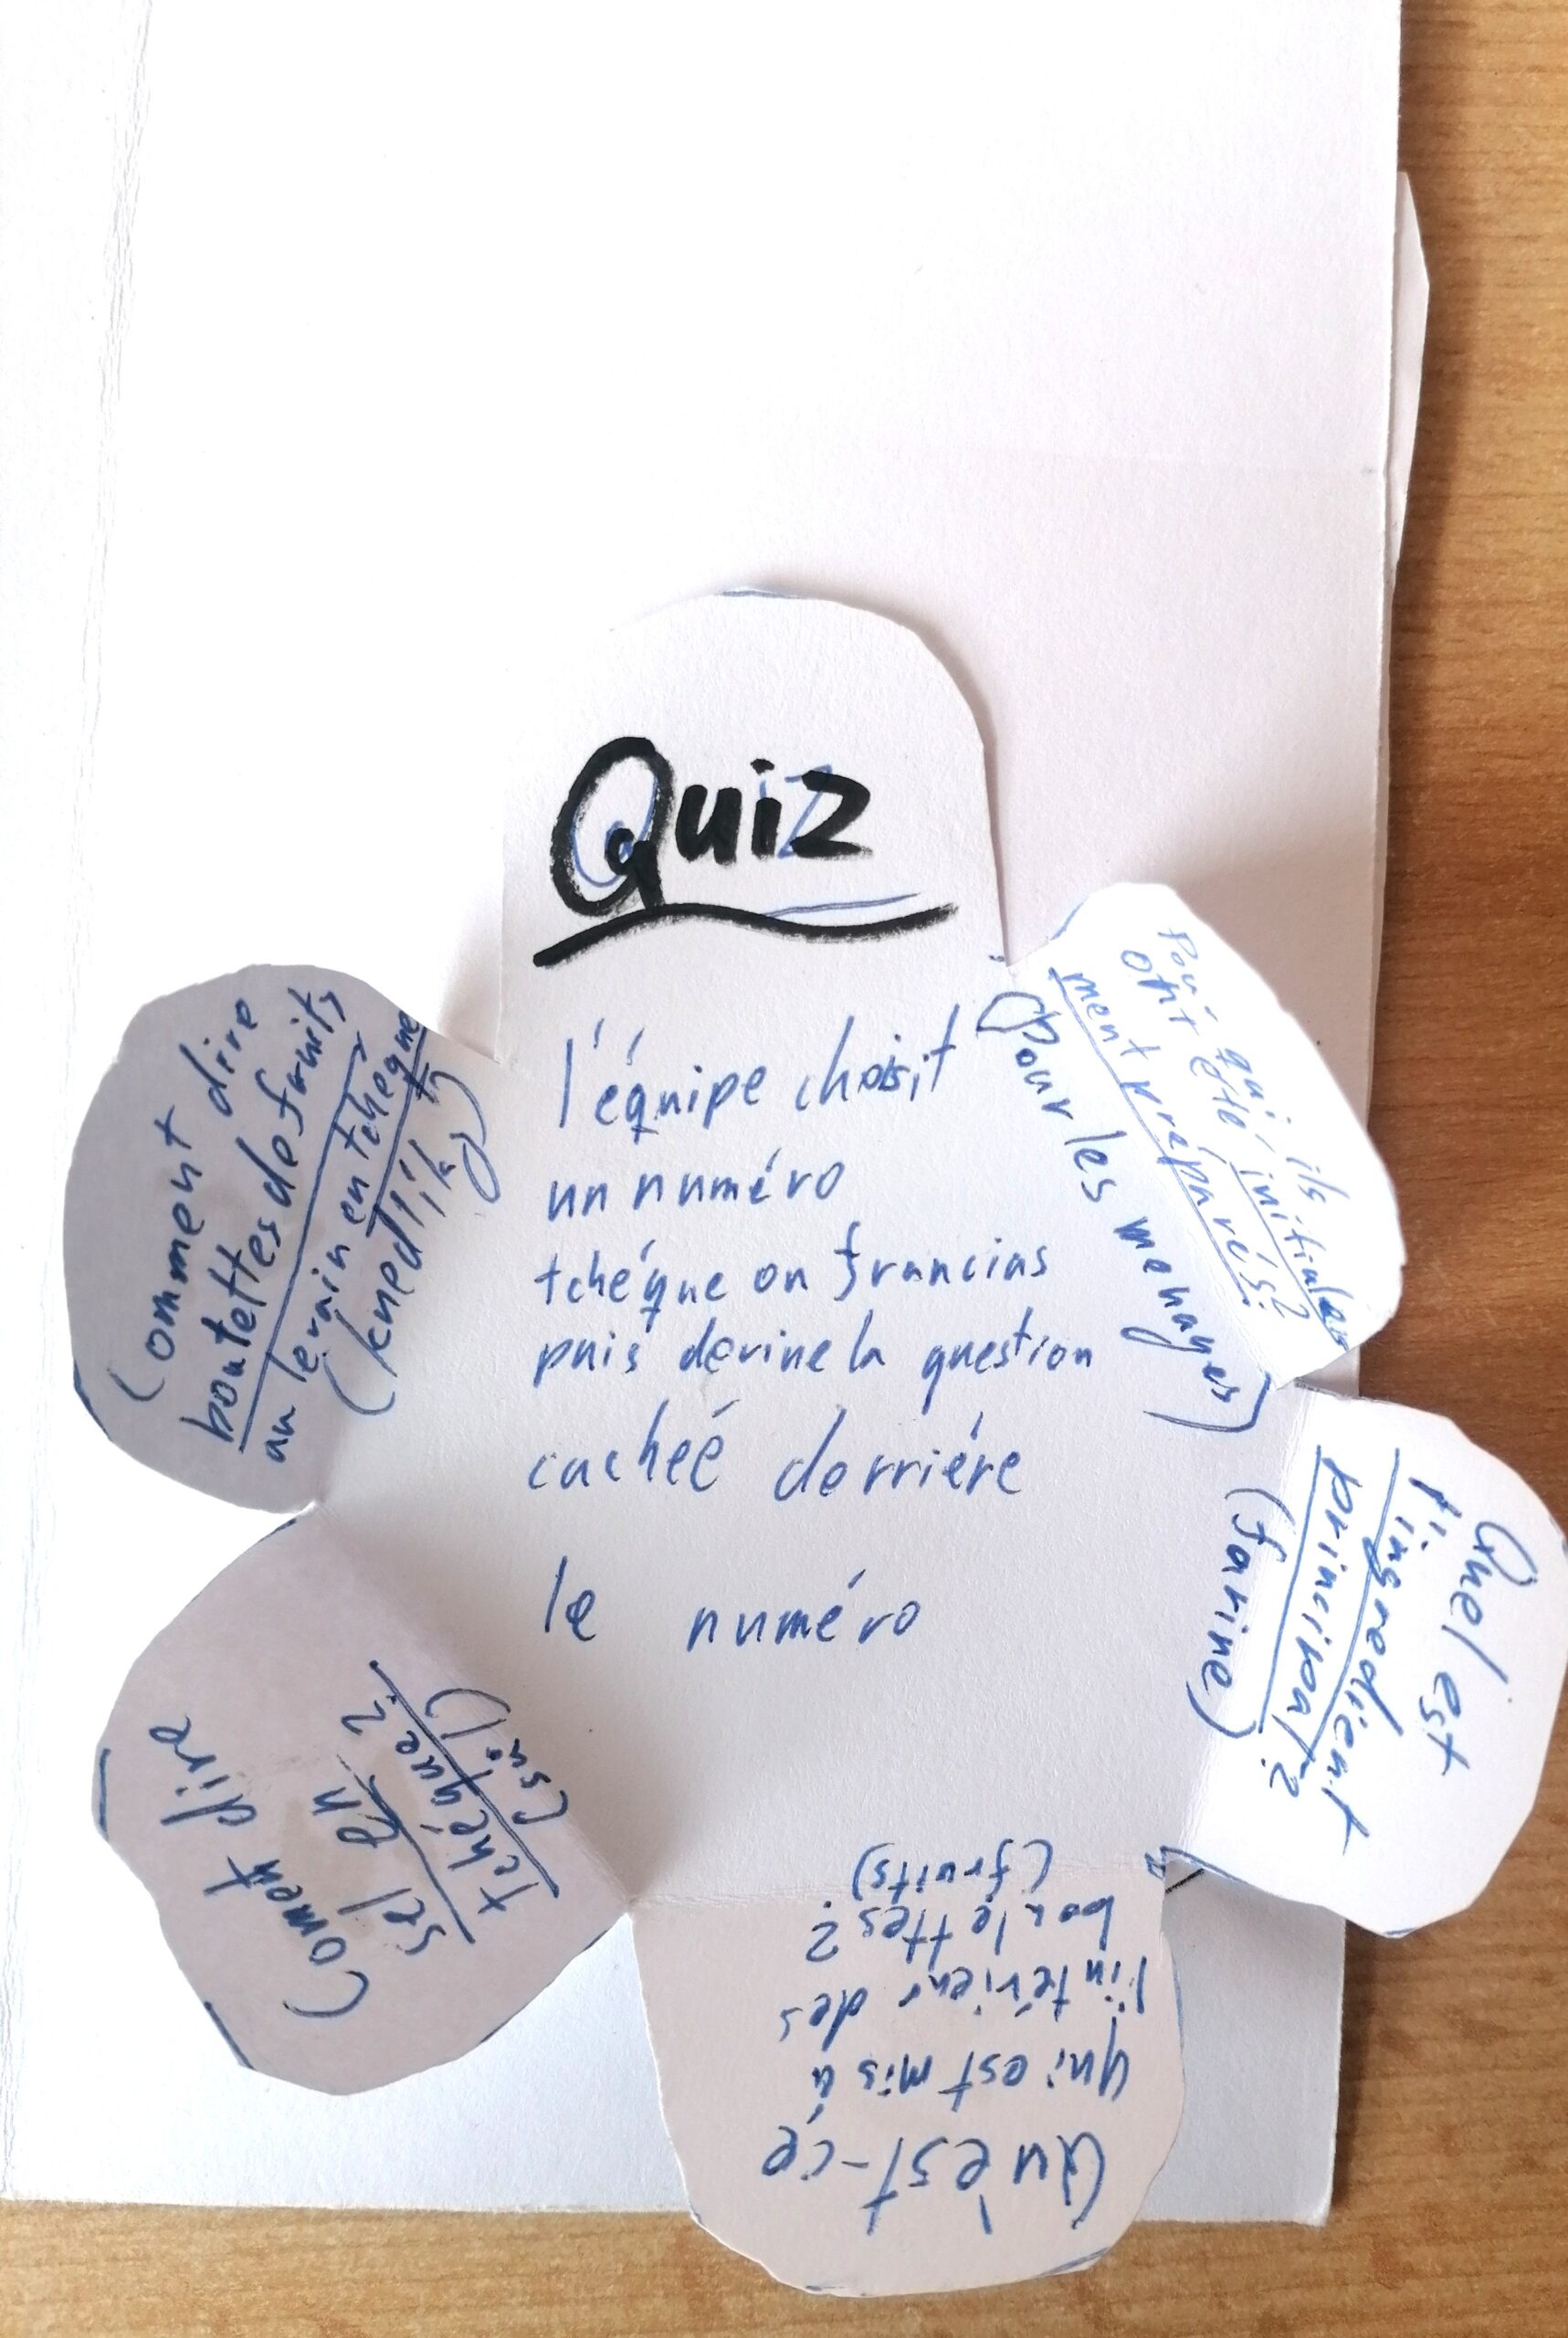 Quiz
l'équipe choisit
un numéro
tchéque ou francias
puis devine la question
cacheé derriére
le numéro
Pour qui ils
ont été initiale
ment préparés?
(pour les menages)
Quel est
l'ingredient
principal?
(farine)
Qu'est-ce
qui est mis à
l'intérieur des
boulettes?
(fruits)
Coment dire
sel en
tchéque?
(sůl)
Comment dire
boulettes de fruits
au levain en tcheque
(knedlík)